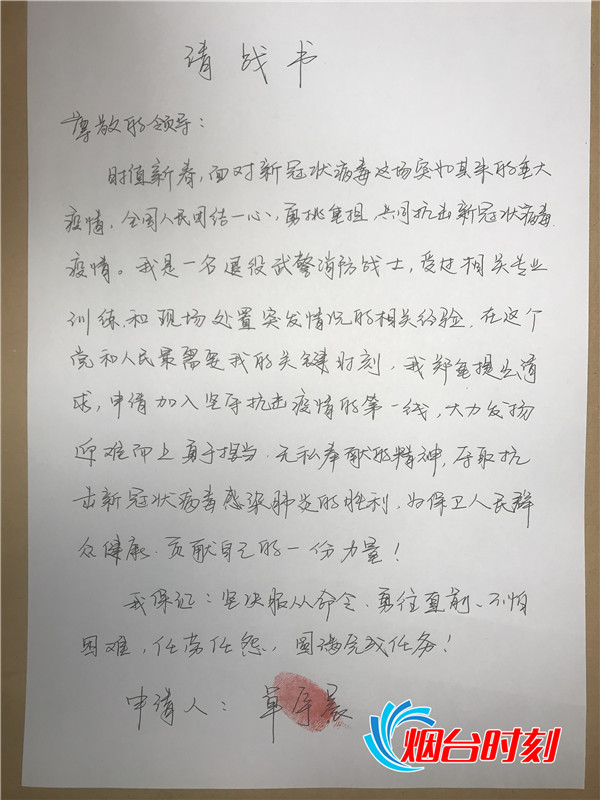 请战书
尊敬的领导：
时值新春，面对新冠状病毒这场突如其来的重大
疫情，全国人民团结一心，勇挑重担，共同抗击新冠状病毒
疫情。我是一名退役武警消防战士，受过相关专业
训练和现场处置突发情况的相关经验，在这个
党和人民最需要我的关键时刻，我郑重提出请
求，申请加入坚守抗击疫情的第一线，大力发扬
迎难而上勇于担当、无私奉献的精神，夺取抗
击新冠状病毒感染肺炎的胜利，为保卫人民群
众健康、贡献自己的一份力量！
我保证：坚决服从命令、勇往直前、不怕
困难，任劳任怨，圆满完成任务！
申请人：
烟台时刻